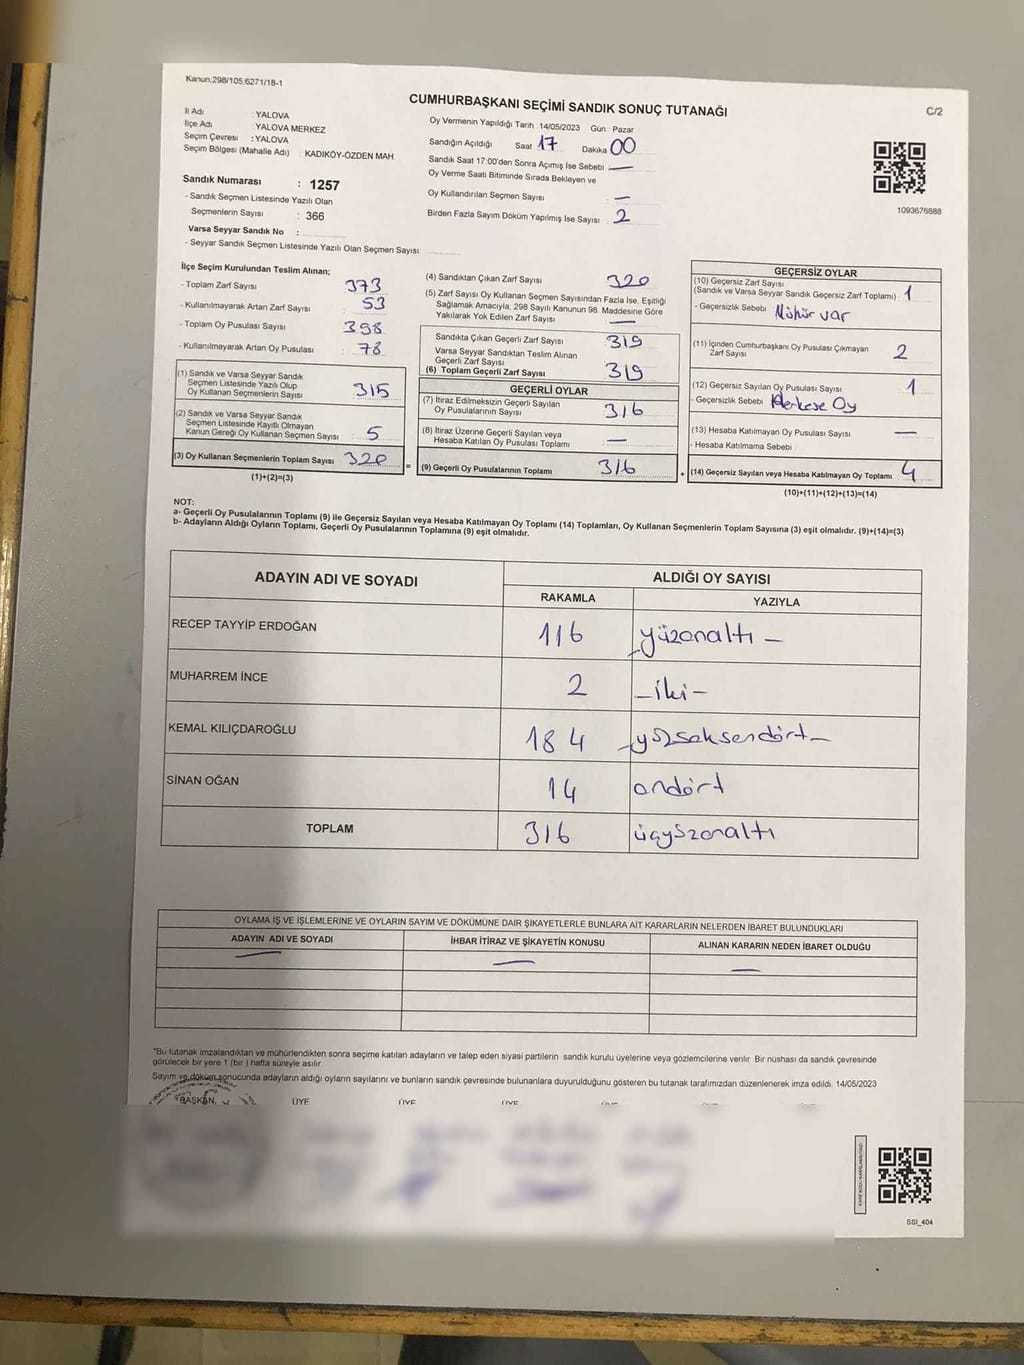 Kanun:298/105,6271/18-1
CUMHURBAŞKANI SEÇİMİ SANDIK SONUÇ TUTANAĞI
C/2
İl Adı : YALOVA
İlçe Adı : YALOVA MERKEZ
Seçim Çevresi : YALOVA
Seçim Bölgesi (Mahalle Adı) : KADIKÖY-ÖZDEN MAH.
Sandık Numarası : 1257
- Sandık Seçmen Listesinde Yazılı Olan
Seçmenlerin Sayısı : 366
Varsa Seyyar Sandık No :
- Seyyar Sandık Seçmen Listesinde Yazılı Olan Seçmen Sayısı:
Oy Vermenin Yapıldığı Tarih :14/05/2023 Gün : Pazar
Sandığın Açıldığı Saat 17 Dakika 00
Sandık Saat 17:00'den Sonra Açımış İse Sebebi —
Oy Verme Saati Bitiminde Sırada Bekleyen ve
Oy Kullandırılan Seçmen Sayısı : —
Birden Fazla Sayım Döküm Yapılmış İse Sayısı : 2
1093676888
İlçe Seçim Kurulundan Teslim Alınan;
- Toplam Zarf Sayısı : 373
- Kullanılmayarak Artan Zarf Sayısı : 53
- Toplam Oy Pusulası Sayısı : 398
- Kullanılmayarak Artan Oy Pusulası : 78
(1) Sandık ve Varsa Seyyar Sandık
Seçmen Listesinde Yazılı Olup
Oy Kullanan Seçmenlerin Sayısı : 315
(2) Sandık ve Varsa Seyyar Sandık
Seçmen Listesinde Kayıtlı Olmayan
Kanun Gereği Oy Kullanan Seçmen Sayısı : 5
(3) Oy Kullanan Seçmenlerin Toplam Sayısı : 320
(1)+(2)=(3)
=
(4) Sandıktan Çıkan Zarf Sayısı : 320
(5) Zarf Sayısı Oy Kullanan Seçmen Sayısından Fazla İse, Eşitliği
Sağlamak Amacıyla, 298 Sayılı Kanunun 98. Maddesine Göre
Yakılarak Yok Edilen Zarf Sayısı : —
Sandıkta Çıkan Geçerli Zarf Sayısı : 319
Varsa Seyyar Sandıktan Teslim Alınan
Geçerli Zarf Sayısı
(6) Toplam Geçerli Zarf Sayısı : 319
GEÇERLİ OYLAR
(7) İtiraz Edilmeksizin Geçerli Sayılan
Oy Pusulalarının Sayısı : 316
(8) İtiraz Üzerine Geçerli Sayılan veya
Hesaba Katılan Oy Pusulası Toplamı : —
(9) Geçerli Oy Pusulalarının Toplamı : 316
+
GEÇERSİZ OYLAR
(10) Geçersiz Zarf Sayısı
(Sandık ve Varsa Seyyar Sandık Geçersiz Zarf Toplamı) : 1
- Geçersizlik Sebebi Mühür var
(11) İçinden Cumhurbaşkanı Oy Pusulası Çıkmayan
Zarf Sayısı : 2
(12) Geçersiz Sayılan Oy Pusulası Sayısı : 1
- Geçersizlik Sebebi Herkese Oy
(13) Hesaba Katılmayan Oy Pusulası Sayısı : —
- Hesaba Katılmama Sebebi :
(14) Geçersiz Sayılan veya Hesaba Katılmayan Oy Toplamı : 4
(10)+(11)+(12)+(13)=(14)
NOT:
a- Geçerli Oy Pusulalarının Toplamı (9) ile Geçersiz Sayılan veya Hesaba Katılmayan Oy Toplamı (14) Toplamları, Oy Kullanan Seçmenlerin Toplam Sayısına (3) eşit olmalıdır. (9)+(14)=(3)
b- Adayların Aldığı Oyların Toplamı, Geçerli Oy Pusulalarının Toplamına (9) eşit olmalıdır.
ADAYIN ADI VE SOYADI ALDIĞI OY SAYISI
RAKAMLA YAZIYLA
RECEP TAYYİP ERDOĞAN 116 yüzonaltı –
MUHARREM İNCE 2 –iki–
KEMAL KILIÇDAROĞLU 184 –yüzseksendört–
SİNAN OĞAN 14 ondört
TOPLAM 316 üçyüzonaltı
OYLAMA İŞ VE İŞLEMLERİNE VE OYLARIN SAYIM VE DÖKÜMÜNE DAİR ŞİKAYETLERLE BUNLARA AİT KARARLARIN NELERDEN İBARET BULUNDUKLARI
ADAYIN ADI VE SOYADI İHBAR İTİRAZ VE ŞİKAYETİN KONUSU ALINAN KARARIN NEDEN İBARET OLDUĞU
— — —
*Bu tutanak imzalandıktan ve mühürlendikten sonra seçime katılan adayların ve talep eden siyasi partilerin sandık kurulu üyelerine veya gözlemcilerine verilir. Bir nüshası da sandık çevresinde
görülecek bir yere 1 (bir) hafta süreyle asılır.
Sayım ve döküm sonucunda adayların aldığı oyların sayılarını ve bunların sandık çevresinde bulunanlara duyurulduğunu gösteren bu tutanak tarafımızdan düzenlenerek imza edildi. 14/05/2023
BAŞKAN ÜYE ÜYE ÜYE
SSI_404